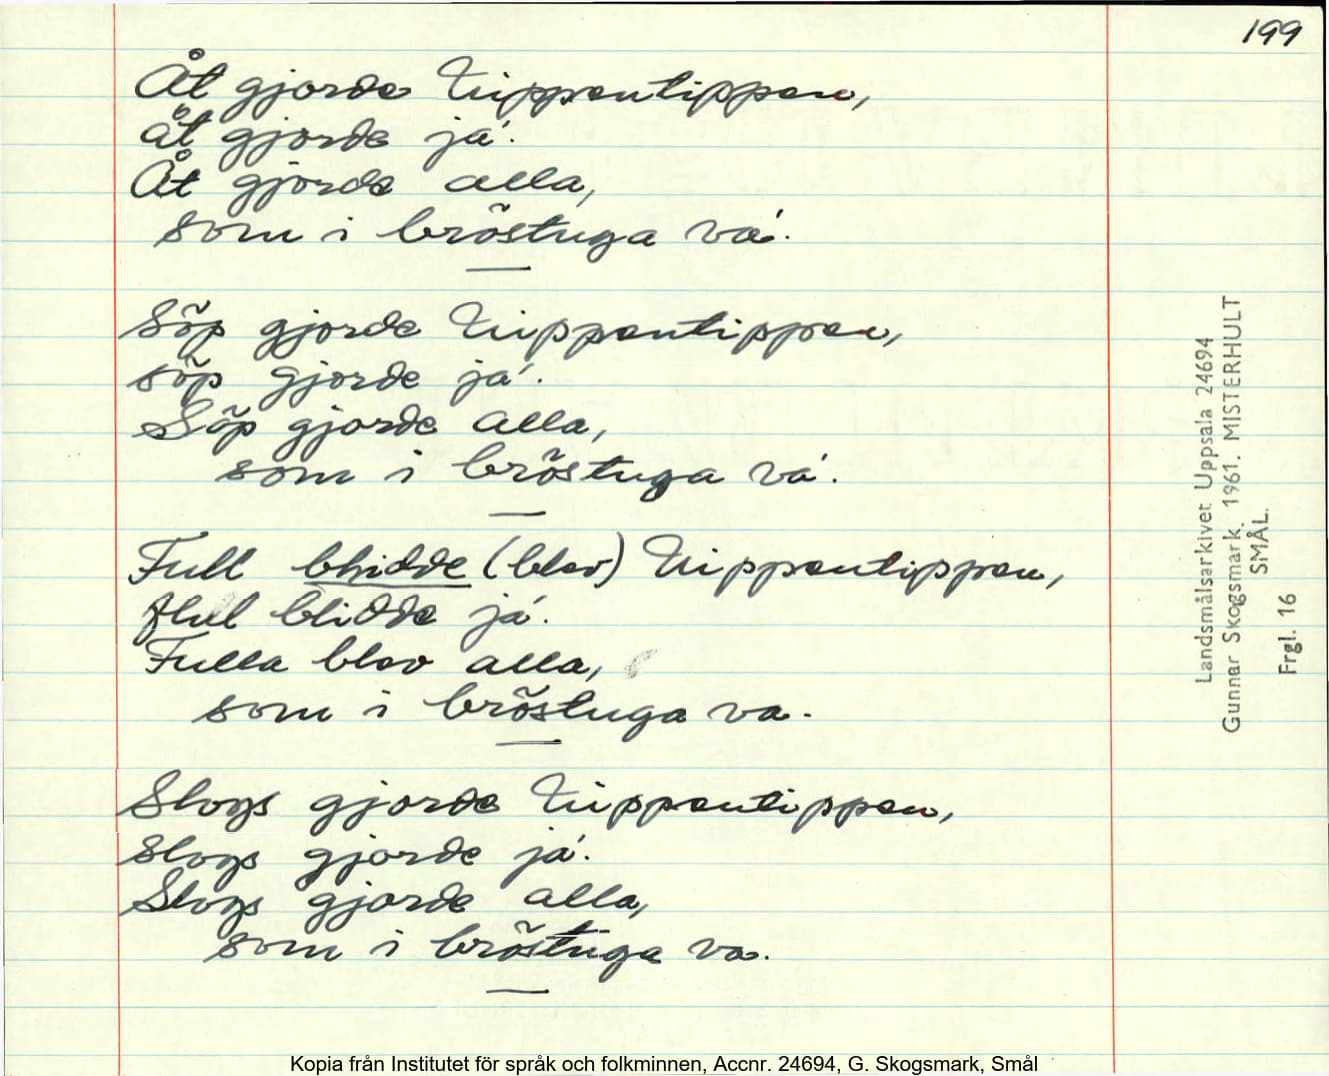 199
Åt gjorde Trippentippen,
åt gjorde já.
Åt gjorde alla,
som i bröstuga vá.
Söp gjorde Trippentippen,
söp gjorde já.
Söp gjorde alla,
som i bröstuga vá.
Full blidde (blev) Trippentippen,
full blidde já.
Fulla blev alla,
som i bröstuga va.
Slogs gjorde Trippentippen,
slogs gjorde já.
Slogs gjorde alla,
som i bröstuga va.
Landsmålsarkivet Uppsala 24694
Gunnar Skogsmark. 1961. MISTERHULT
SMÅL.
Frgl. 16
Kopia från Institutet för språk och folkminnen, Accnr. 24694, G. Skogsmark, Smål